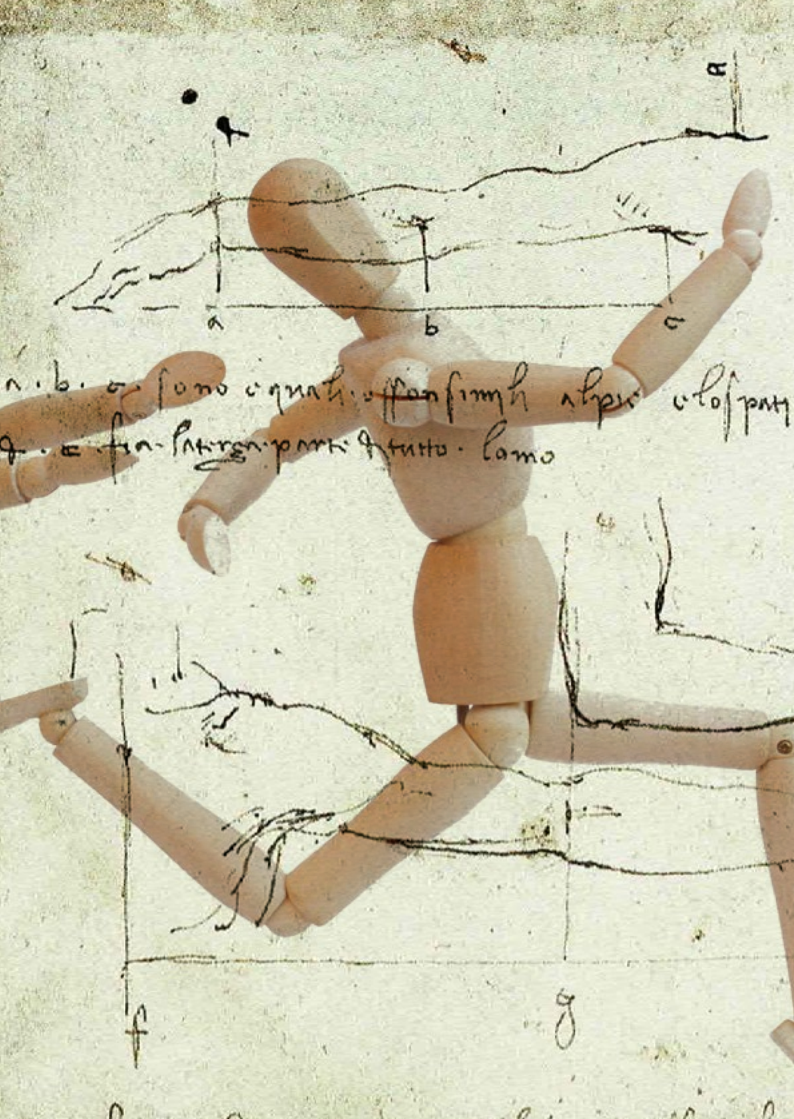 a
a b c
a · b · c · sono equali esson simili alpie elospati
c · fia · laterza · parte de tutto · lomo
f g